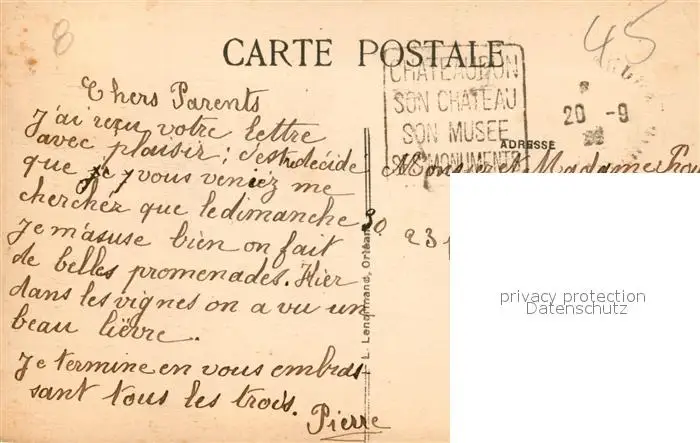 8
45
CARTE POSTALE
CHATEAUDUN
SON CHATEAU
SON MUSEE
SES MONUMENTS
20 - 9
ADRESSE
Chers Parents
J'ai reçu votre lettre
avec plaisir ; c'est décidé
que vous veniez me
cherchez que le dimanche 30.
Je m'asuse bien on fait
de belles promenades. Hier
dans les vignes on a vu un
beau lièvre.
Je termine en vous embras-
sant tous les trois.
Pierre
L. Lenormand, Orléans
Monsieur et Madame
23
privacy protection
Datenschutz